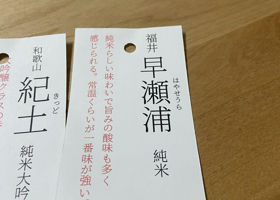 福井
早瀬浦
はやせうら
純米
純米らしい味わいで旨みの酸味も多く
感じられる。常温くらいが一番味が強い。
和歌山
紀土
きっど
純米大吟
吟醸クラスの